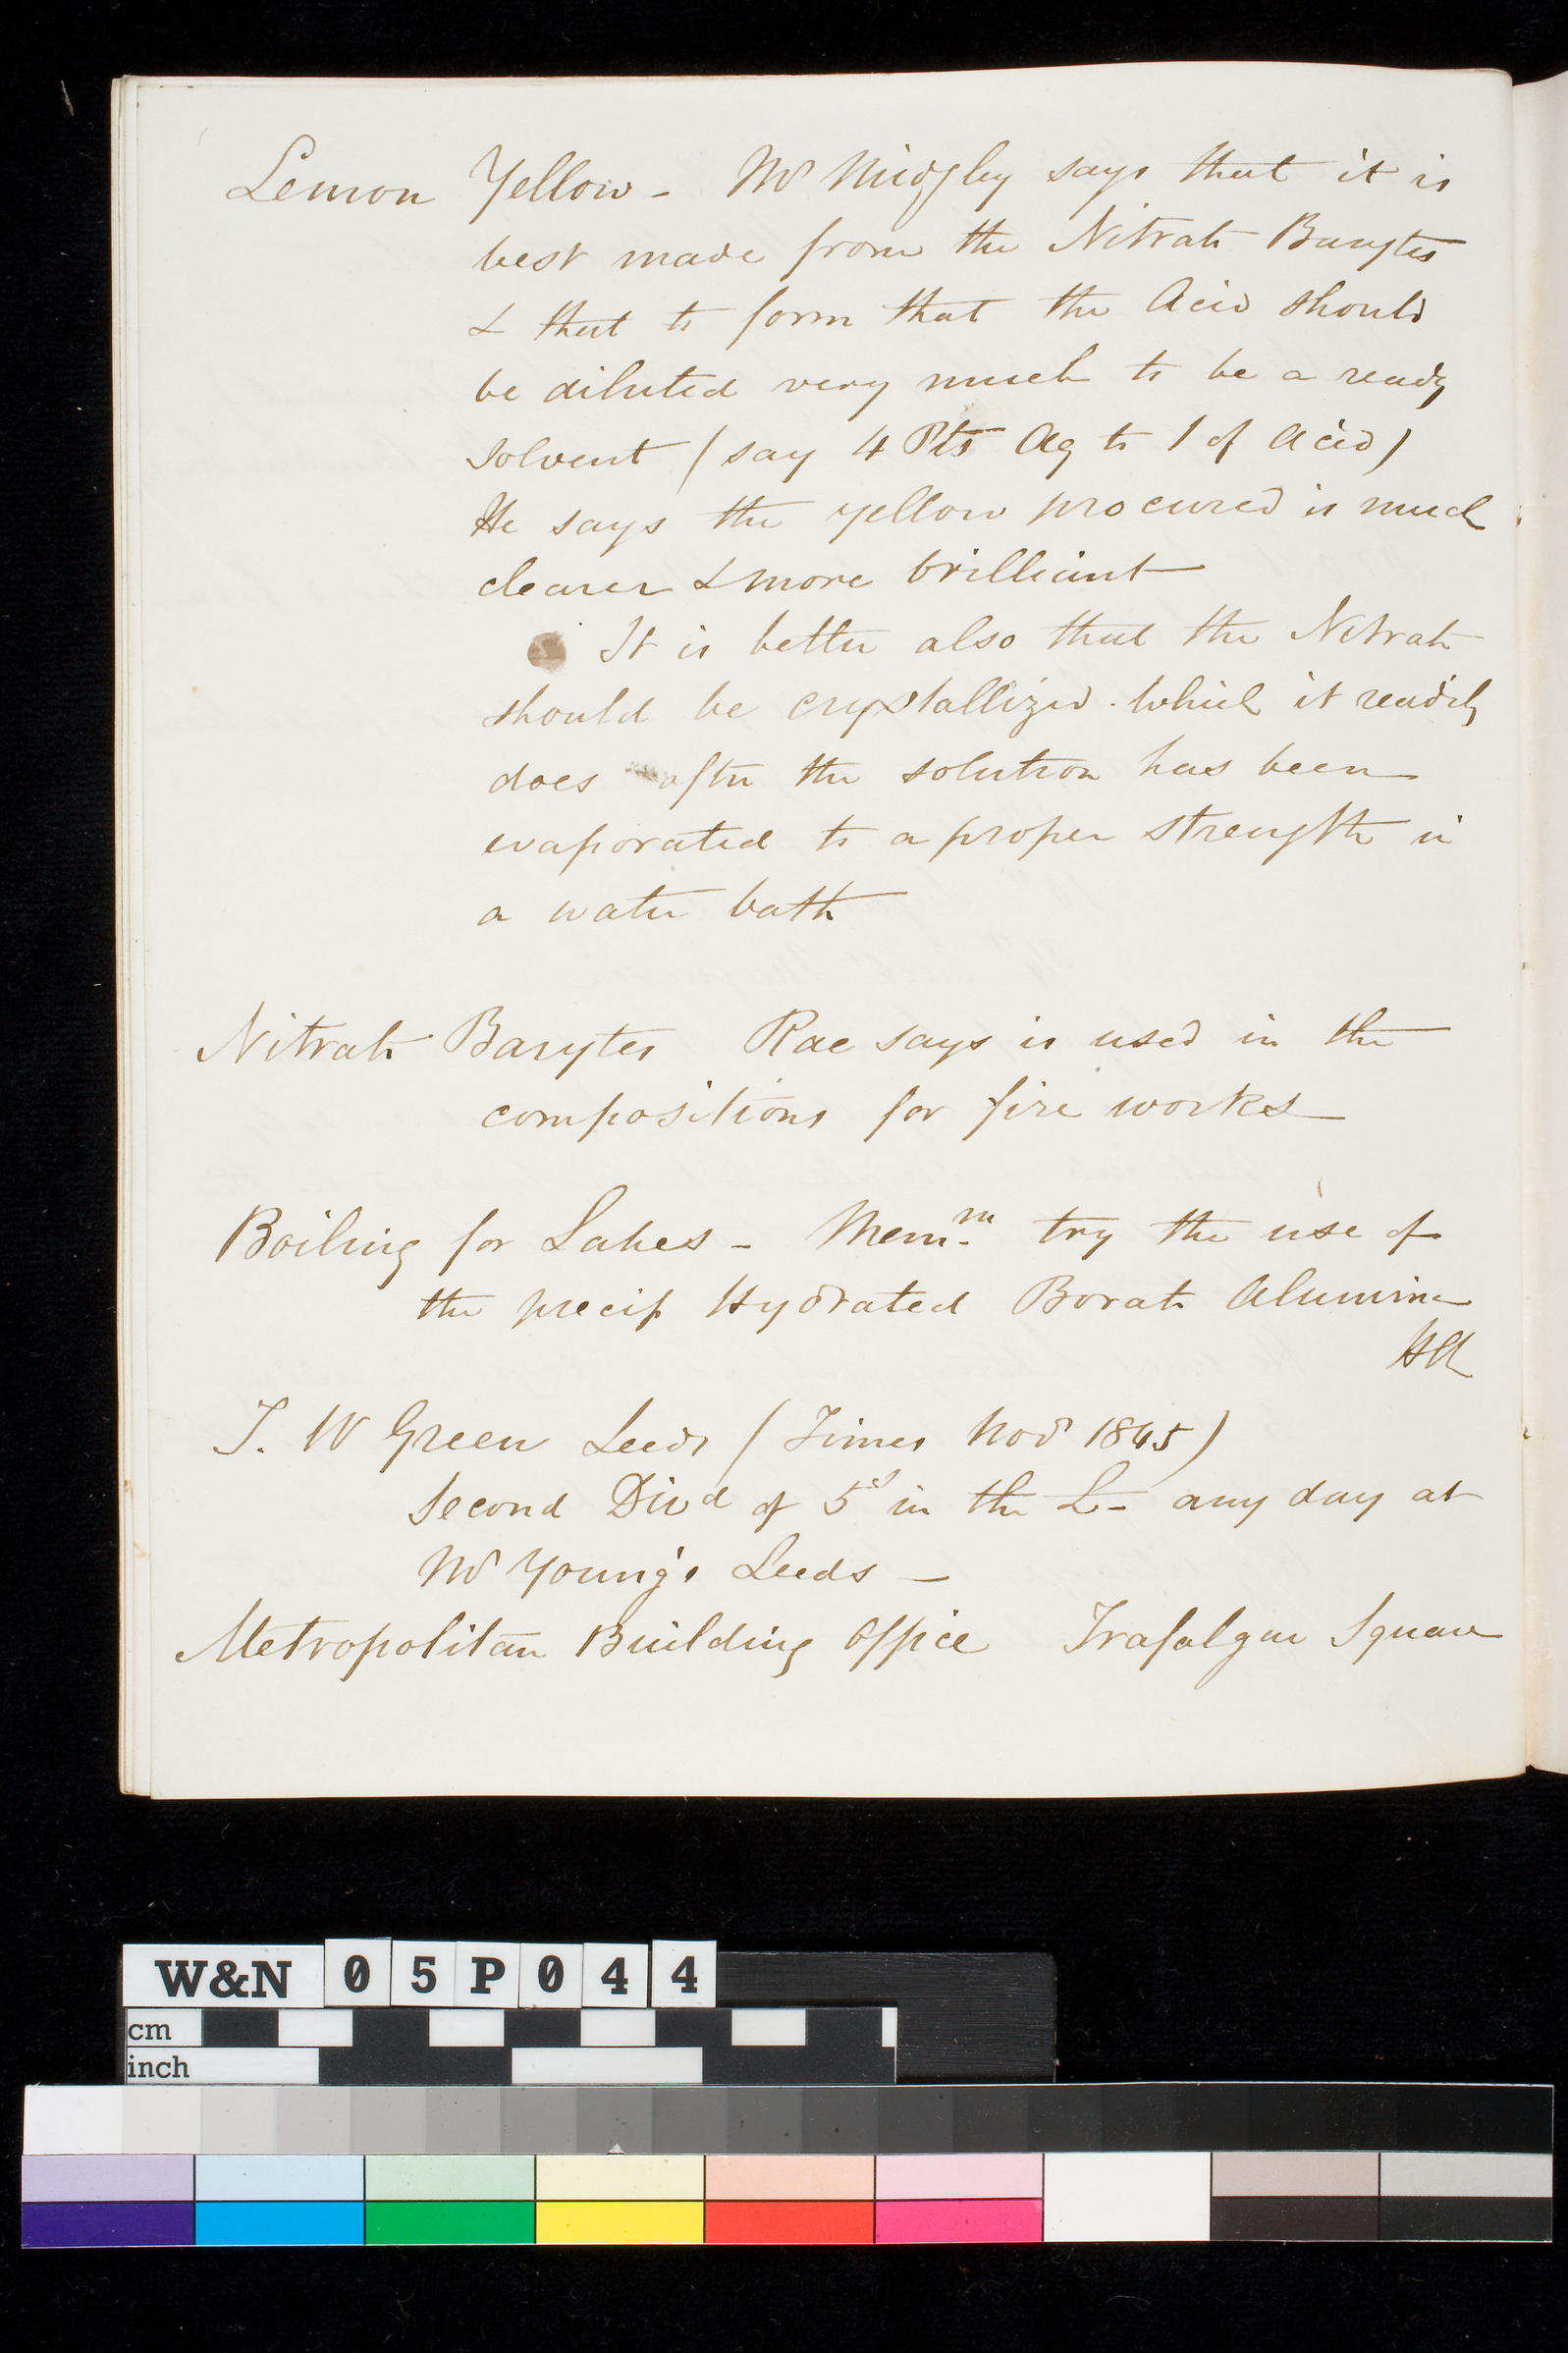 Lemon Yellow - Mr Midgley says that it is
best made from the Nitrate Barytes
& that to form that the Acid should
be diluted very much to be a ready
solvent (say 4 Pts Aq to 1 of Acid)
He says the yellow procured is much
clearer & more brilliant
It is better also that the Nitrate
should be crystallized. which it readily
does after the solution has been
evaporated to a proper strength in
a water bath
Nitrate Barytes Rae says is used in the
compositions for fire works
Boiling for Lakes - Memm. try the use of
the precip Hydrated Borate Alumine
T. W Green Leeds (Times Novr 1845)
Second Divd of 5s in the £ - any day at
Mr Young's Leeds -
Metropolitan Building Office Trafalgar Square
W&N 05P044
cm
inch